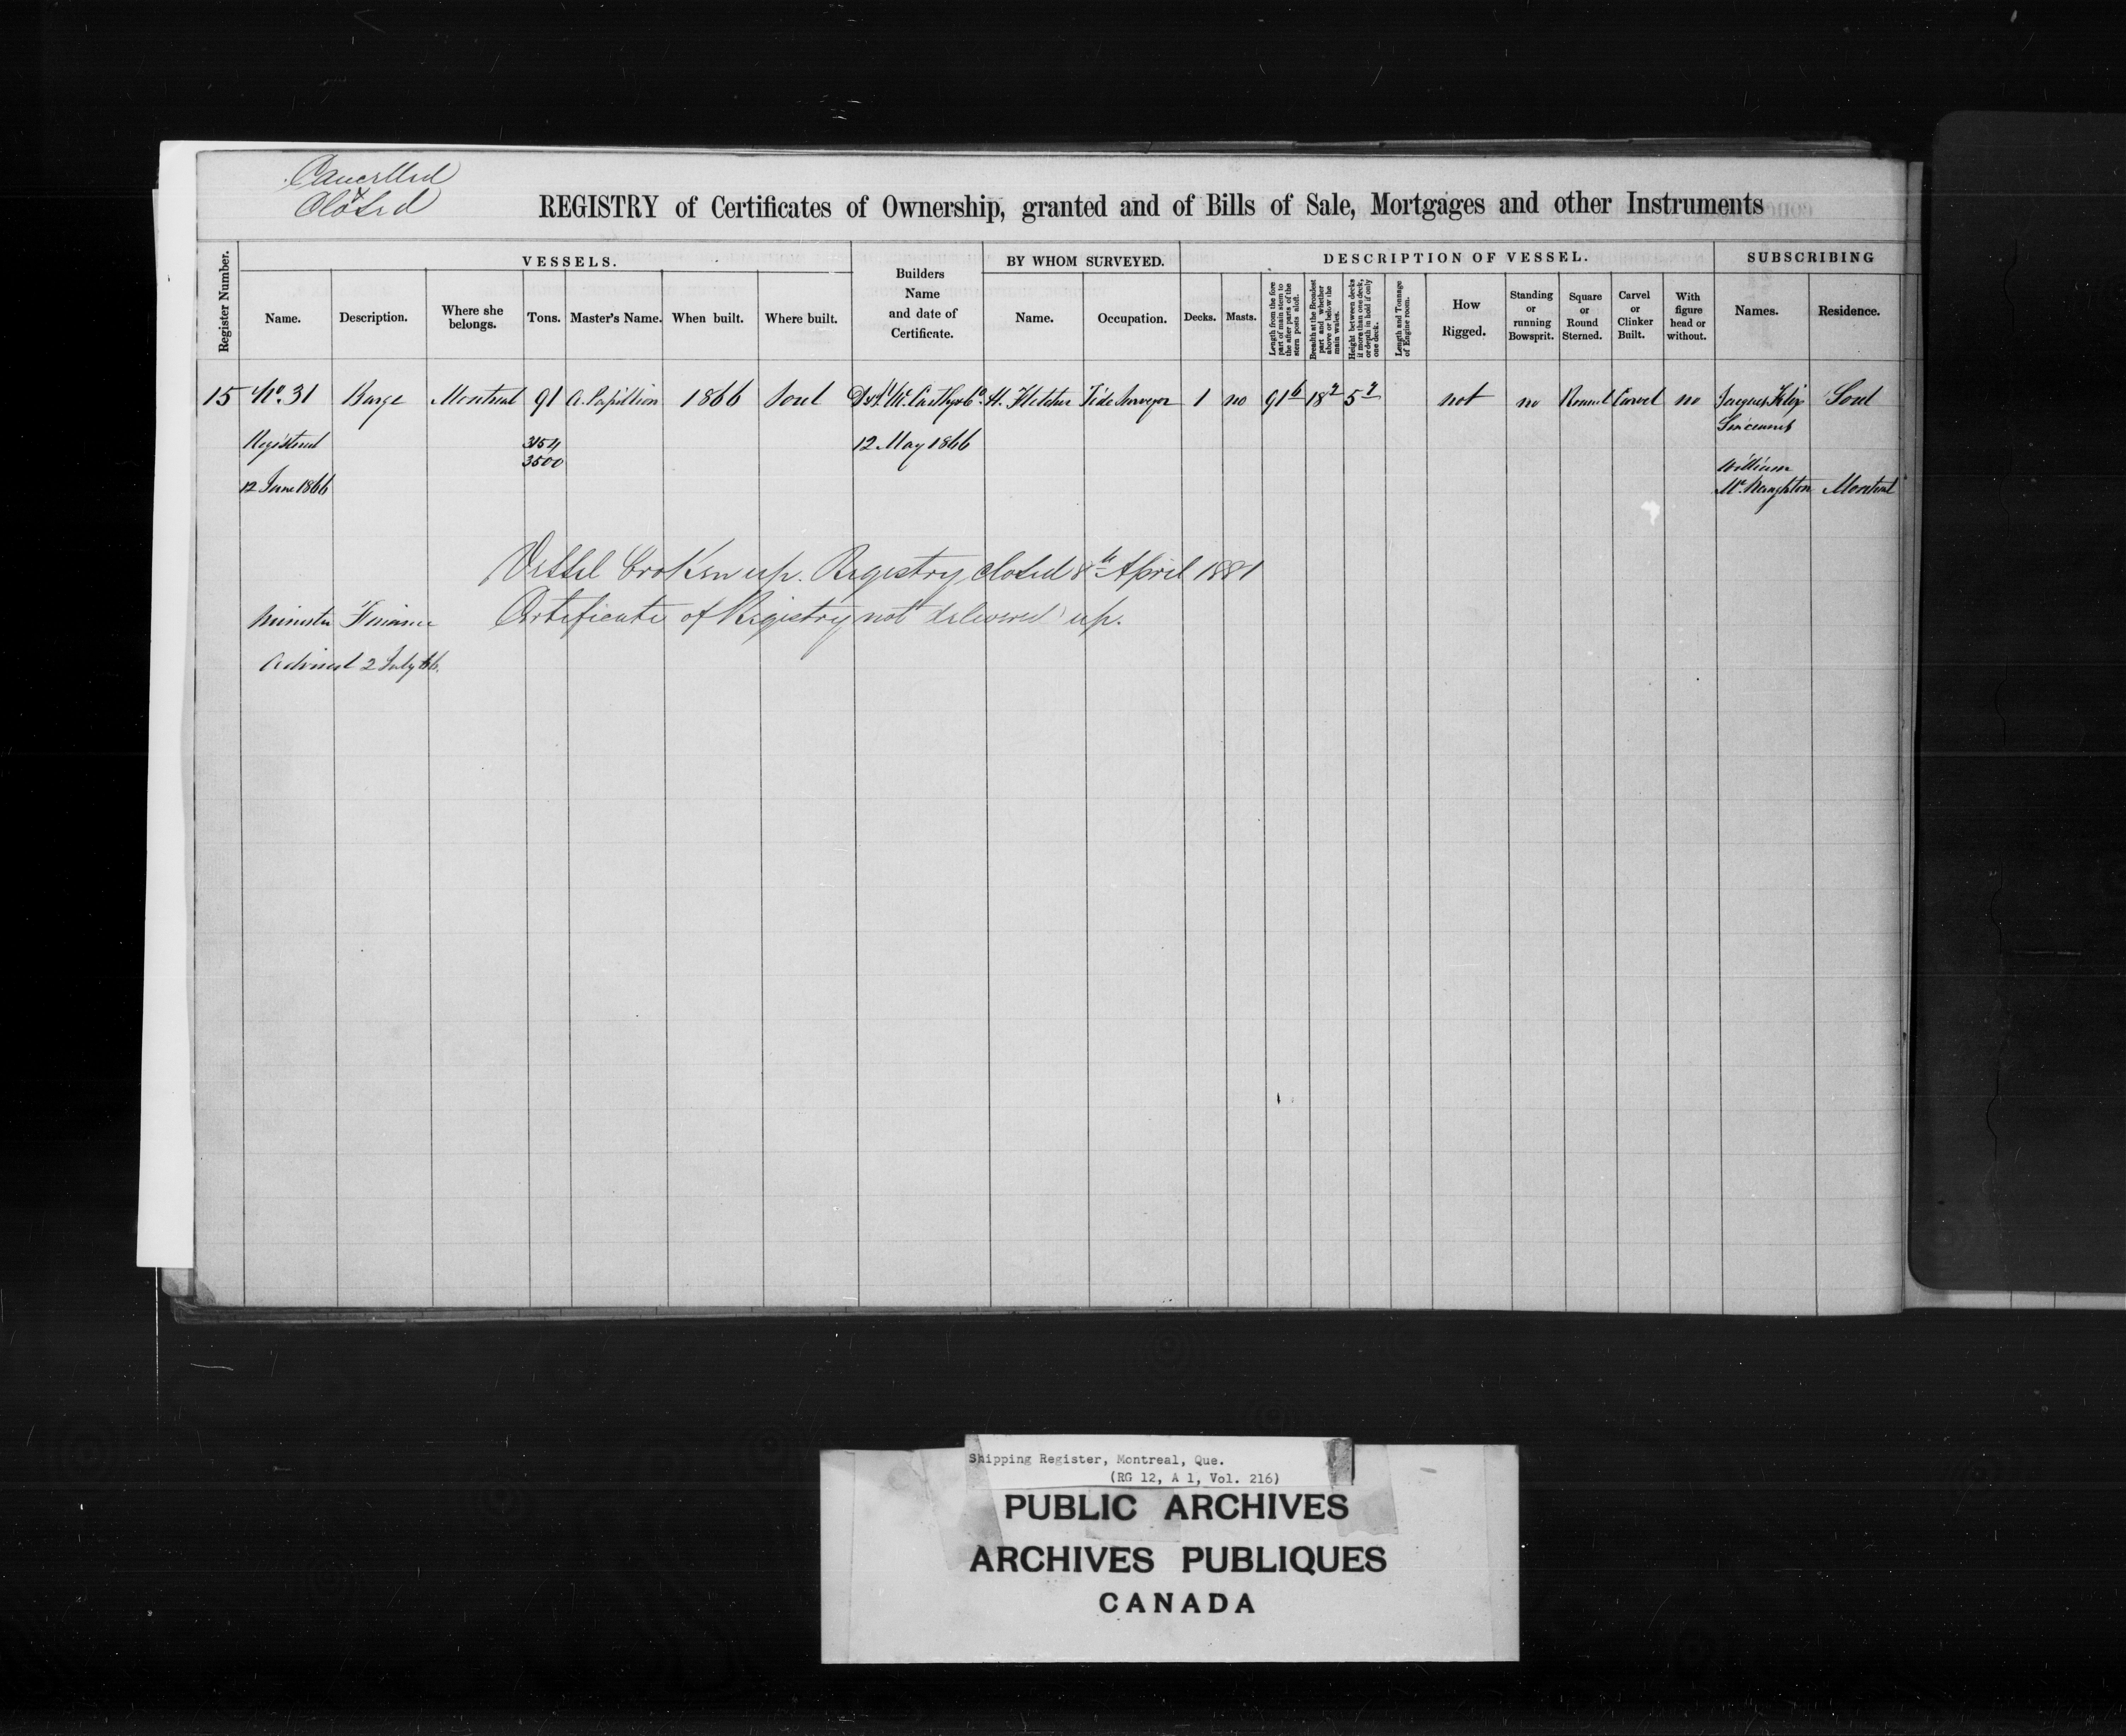 Cancelled
Closed
REGISTRY of Certificates of Ownership, granted and of Bills of Sale, Mortgages and other Instruments
Register Number.
VESSELS.
Name.
Description.
Where she
belongs.
Tons.
Master's Name.
When built.
Where built.
Builders
Name
and date of
Certificate.
BY WHOM SURVEYED.
Name.
Occupation.
DESCRIPTION OF VESSEL.
Decks.
Masts.
Length from the fore
part of main stem to
the after parts of the
stern posts aloft.
Breadth at the Broadest
part and whether
above or below the
main wales.
Height between decks
if more than one deck,
or depth in hold if only
one deck.
Length and Tonnage
of Engine room.
How
Rigged.
Standing
or
running
Bowsprit.
Square
or
Round
Sterned.
Carvel
or
Clinker
Built.
With
figure
head or
without.
SUBSCRIBING
Names.
Residence.
15 No. 31 Barge Montreal 91 A. Papillion 1866 Sorel D & J McCarthy & Co. H. Fletcher Tide Surveyor 1 no 91 6 18 2 5 7 not no Round Carvel no Sorel
Registered 3154 12 May 1866
3500
William
12 June 1866 McNaughton Montreal
Vessel broken up. Registry closed 8th April 1881
Certificate of Registry not delivered up.
Minister Finance
Advised 2 July 66.
Shipping Register, Montreal, Que.
(RG 12, A 1, Vol. 216)
PUBLIC ARCHIVES
ARCHIVES PUBLIQUES
CANADA